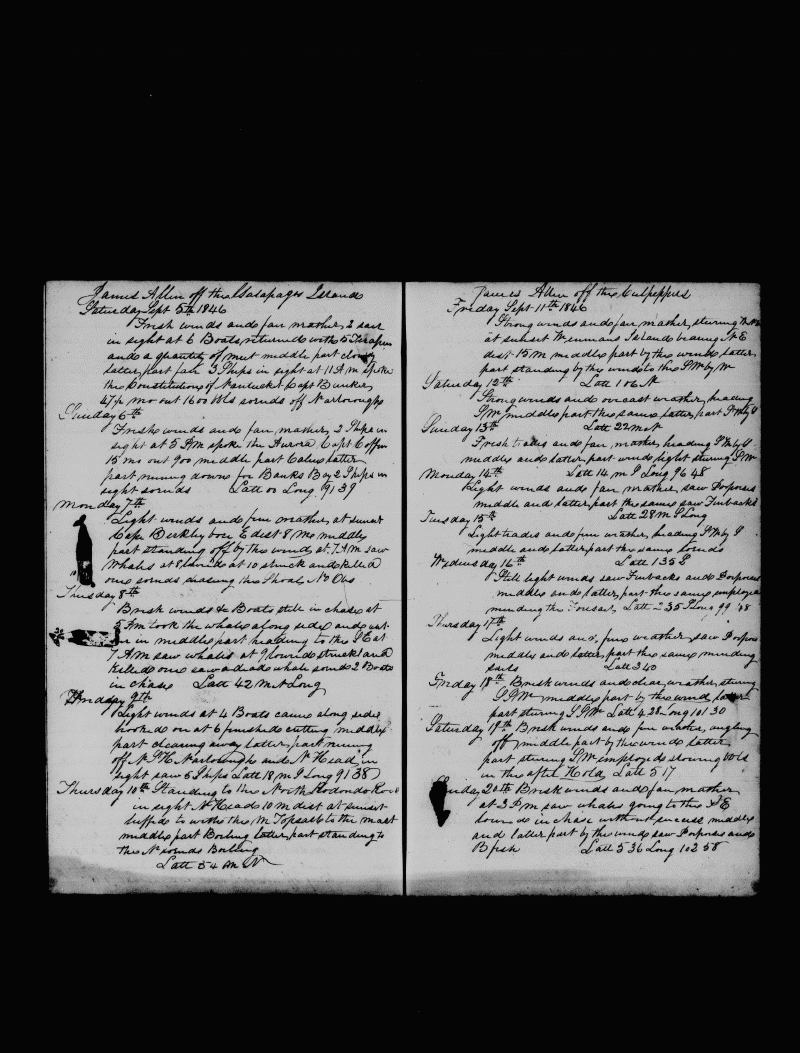 James Allen off the Galapagos Island
Saturday Sept 5th 1846
Fresh winds and fair weather, 2 sail
in sight at 6 Boats returned with 5 Terapin
and a quantity of meat middle part cloudy
latter part fair 3 Ships in sight at 11 A m spoke
the Constitution of Nantucket Capt Bunker
47½ mo out 1600 bbls sounds off Narboroughs
Sunday 6th
Fresh winds and fair weather, 2 Ships in
sight at 5 P M spoke the Aurora, Capt Coffin
15 ms out 900 middle part Calm latter
part running down for Banks Bay 2 Ships in
sight sounds Latt 00 Long 91 39
Monday 7th
Light winds and fine weather at sunset
Cape Berkley bore E dist 8 Ms middle
part standing off by the wind at 7 A M saw
Whales at 8 lowered at 10 struck and killed
one sounds chasing the Shoal No Obs
Thursday 8th
Brisk winds & Boats still in chase at
5 Am took the whale along side and cut
in in middle part heading to the S E at
7 A M saw whales at 9 lowered struck and
killed one saw a dead whale sounds 2 Boats
in chase Latt 42 m N Long
9th
Light winds at 4 Boats came along side
hooked on at 6 finished cutting middle
part clearing away latter part running
off N Narboroughs and N Head in
sight saw 5 Ships Latt 18 m S Long 91 38
Thursday 10th Standing to the North Rodondo Rock
in sight N Head 10 m dist at sunset
luffed to with the M Topsail to the mast
middle part Boiling latter part standing to
the N sounds Boiling
Latt 54 m N
James Allen off the Culpeppers
Friday Sept 11th 1846
Strong winds and fair weather, steering
at sunset Wenmans Island bearing N E
dist 15 M middle part by the wind latter
part standing by the wind to the S W by W
Saturday 12th Latt 1 06 N
Strong winds and overcast weather heading
S W middle part the same latter part S W by S
Sunday 13th Latt 22 m N
Fresh trades and fair weather heading S W by S
middle and latter part wind light steering S W
Monday 14th Latt 14 m S Long 96 48
Light winds and fair weather saw Porpoises
middle and latter part the same saw Finbacks
Tuesday 15th Latt 28 M S Long
Light trades and fine weather, heading S W by S
middle and latter part the same sounds
Wednesday 16th Latt 1 35 S
Still light winds saw Finbacks and Porpoises
middle and latter part the same employed
mending the Foresail Latt 2 35 S Long 99 48
Thursday 17th
Light winds and fine weather saw Porpoises
middle and latter part the same mending
sails Latt 3 40
Friday 18th Brisk winds and clear weather steering
S S W middle part by the wind latter
part steering S S W Latt 4 28 Long 101 30
Saturday 19th Brisk winds and fine weather
off middle part by the wind latter
part steering S W employed stowing bbls
in the after Hold Latt 5 17
Sunday 20th Brisk winds and fair weather
at 3 P m saw whales going to the S E
lowered in chase without success middle
and latter part by the wind saw Porpoises and
B fish Latt 5 36 Long 102 58